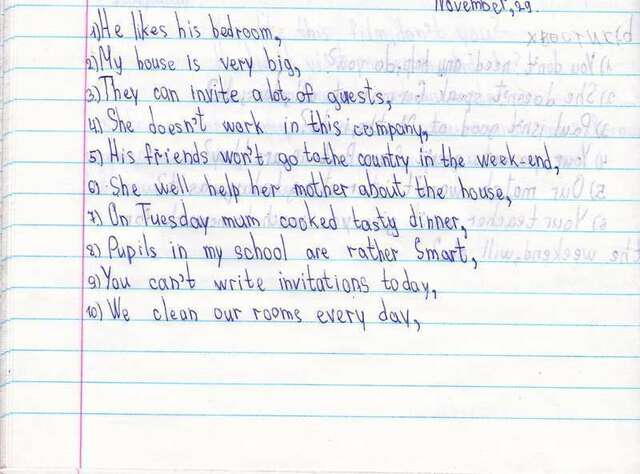 November, 29.
1) He likes his bedroom,
2) My house is very big,
3) They can invite a lot of guests,
4) She doesn't work in this company,
5) His friends won't go to the country in the week-end,
6) She well help her mother about the house,
7) On Tuesday mum cooked tasty dinner,
8) Pupils in my school are rather smart,
9) You can't write invitations today,
10) We clean our rooms every day,